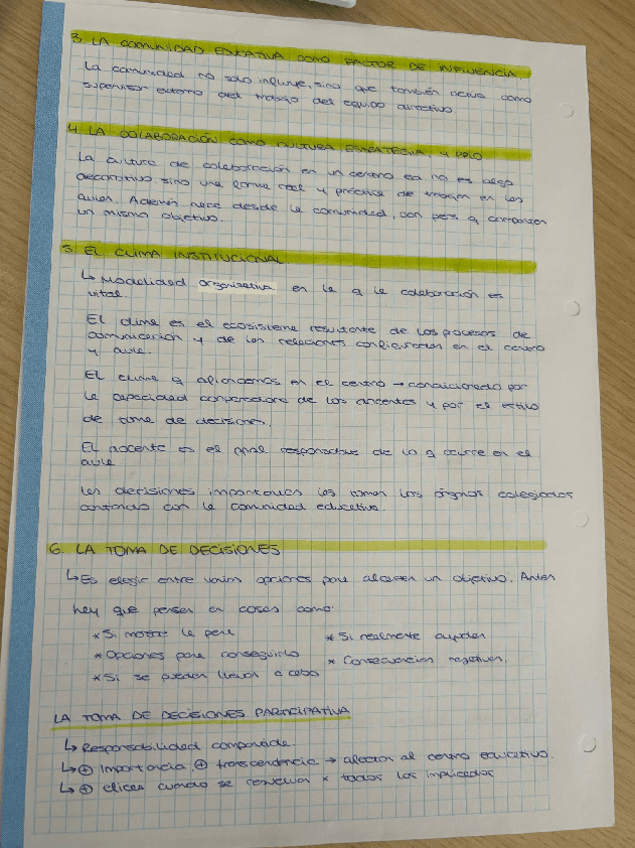 3. LA COMUNIDAD EDUCATIVA COMO FACTOR DE INFLUENCIA
La comunidad no solo influye, sino que también actúa como
supervisor externo del trabajo del equipo directivo.
4. LA COLABORACIÓN COMO CULTURA ESTRATEGIA, Y
La cultura de colaboración en un centro ed. no es algo
decorativo, sino una forma real y práctica de trabajar en las
aulas. Además nace desde la comunidad, con pers. q comparten
un mismo objetivo.
5. EL CLIMA INSTITUCIONAL
↳ Modalidad organizativa en la q la colaboración es
vital.
El clima es el ecosistema resultante de los procesos de
comunicación y de las relaciones en el centro
y aula.
El clima q en el centro → condicionado por
la capacidad de los docentes y por el estilo
de toma de decisiones.
El docente es el responsable de lo q ocurre en el
aula
Las decisiones importantes las toman los órganos colegiados
contando con la comunidad educativa.
6. LA TOMA DE DECISIONES
↳ Es elegir entre varias opciones para alcanzar un objetivo. Antes
hay que pensar en cosas como:
* Si merece la pena * Si realmente ayudan
* Opciones para conseguirlo * Consecuencias negativas.
* Si se pueden llevar a cabo
LA TOMA DE DECISIONES PARTICIPATIVA
↳ Responsabilidad compartida.
↳ ⊕ Importancia, ⊕ trascendencia → afectan al centro educativo.
↳ ⊕ eficaz cuando se resuelven x todos los implicados